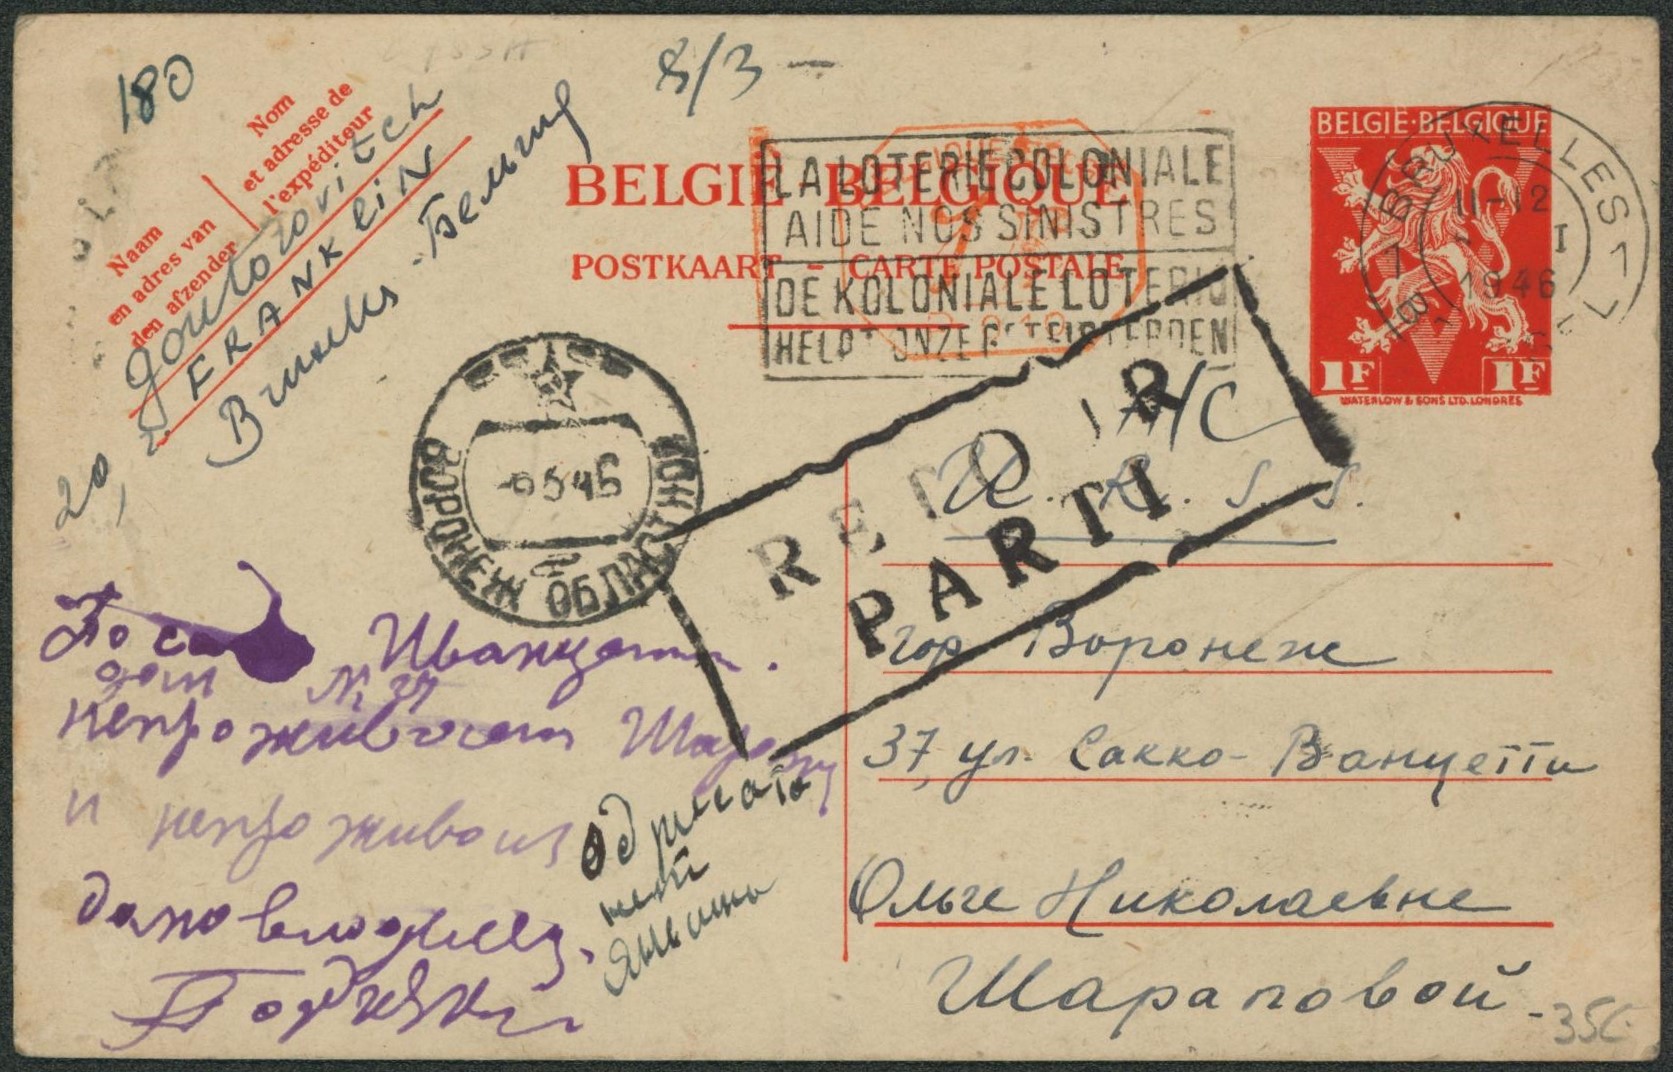 180
8/3 —
Nom
et adresse de
l'expéditeur
Naam
en adres van
den afzender
Goutorovitch
20, FRANKLIN
Bruxelles - Бельгия
BELGIË - BELGIQUE
POSTKAART - CARTE POSTALE
LA LOTERIE COLONIALE
AIDE NOS SINISTRES
DE KOLONIALE LOTERIJ
HELPT ONZE GETEISTERDEN
BELGIE·BELGIQUE
1F 1F
WATERLOW & SONS LTD. LONDRES
BRUXELLES 1
11-12
I
1946
ВОРОНЕЖ ОБЛАСТНОЙ
-6 5 46
RETOUR
PARTI
A/C
U. R. S. S.
гор Воронеж
37, ул. Сакко-Ванцетти
Ольге Николаевне
Шараповой
По Иванцетти.
дом № 37
непроживает
и непроживала
домовладелец
адресата
нет
35